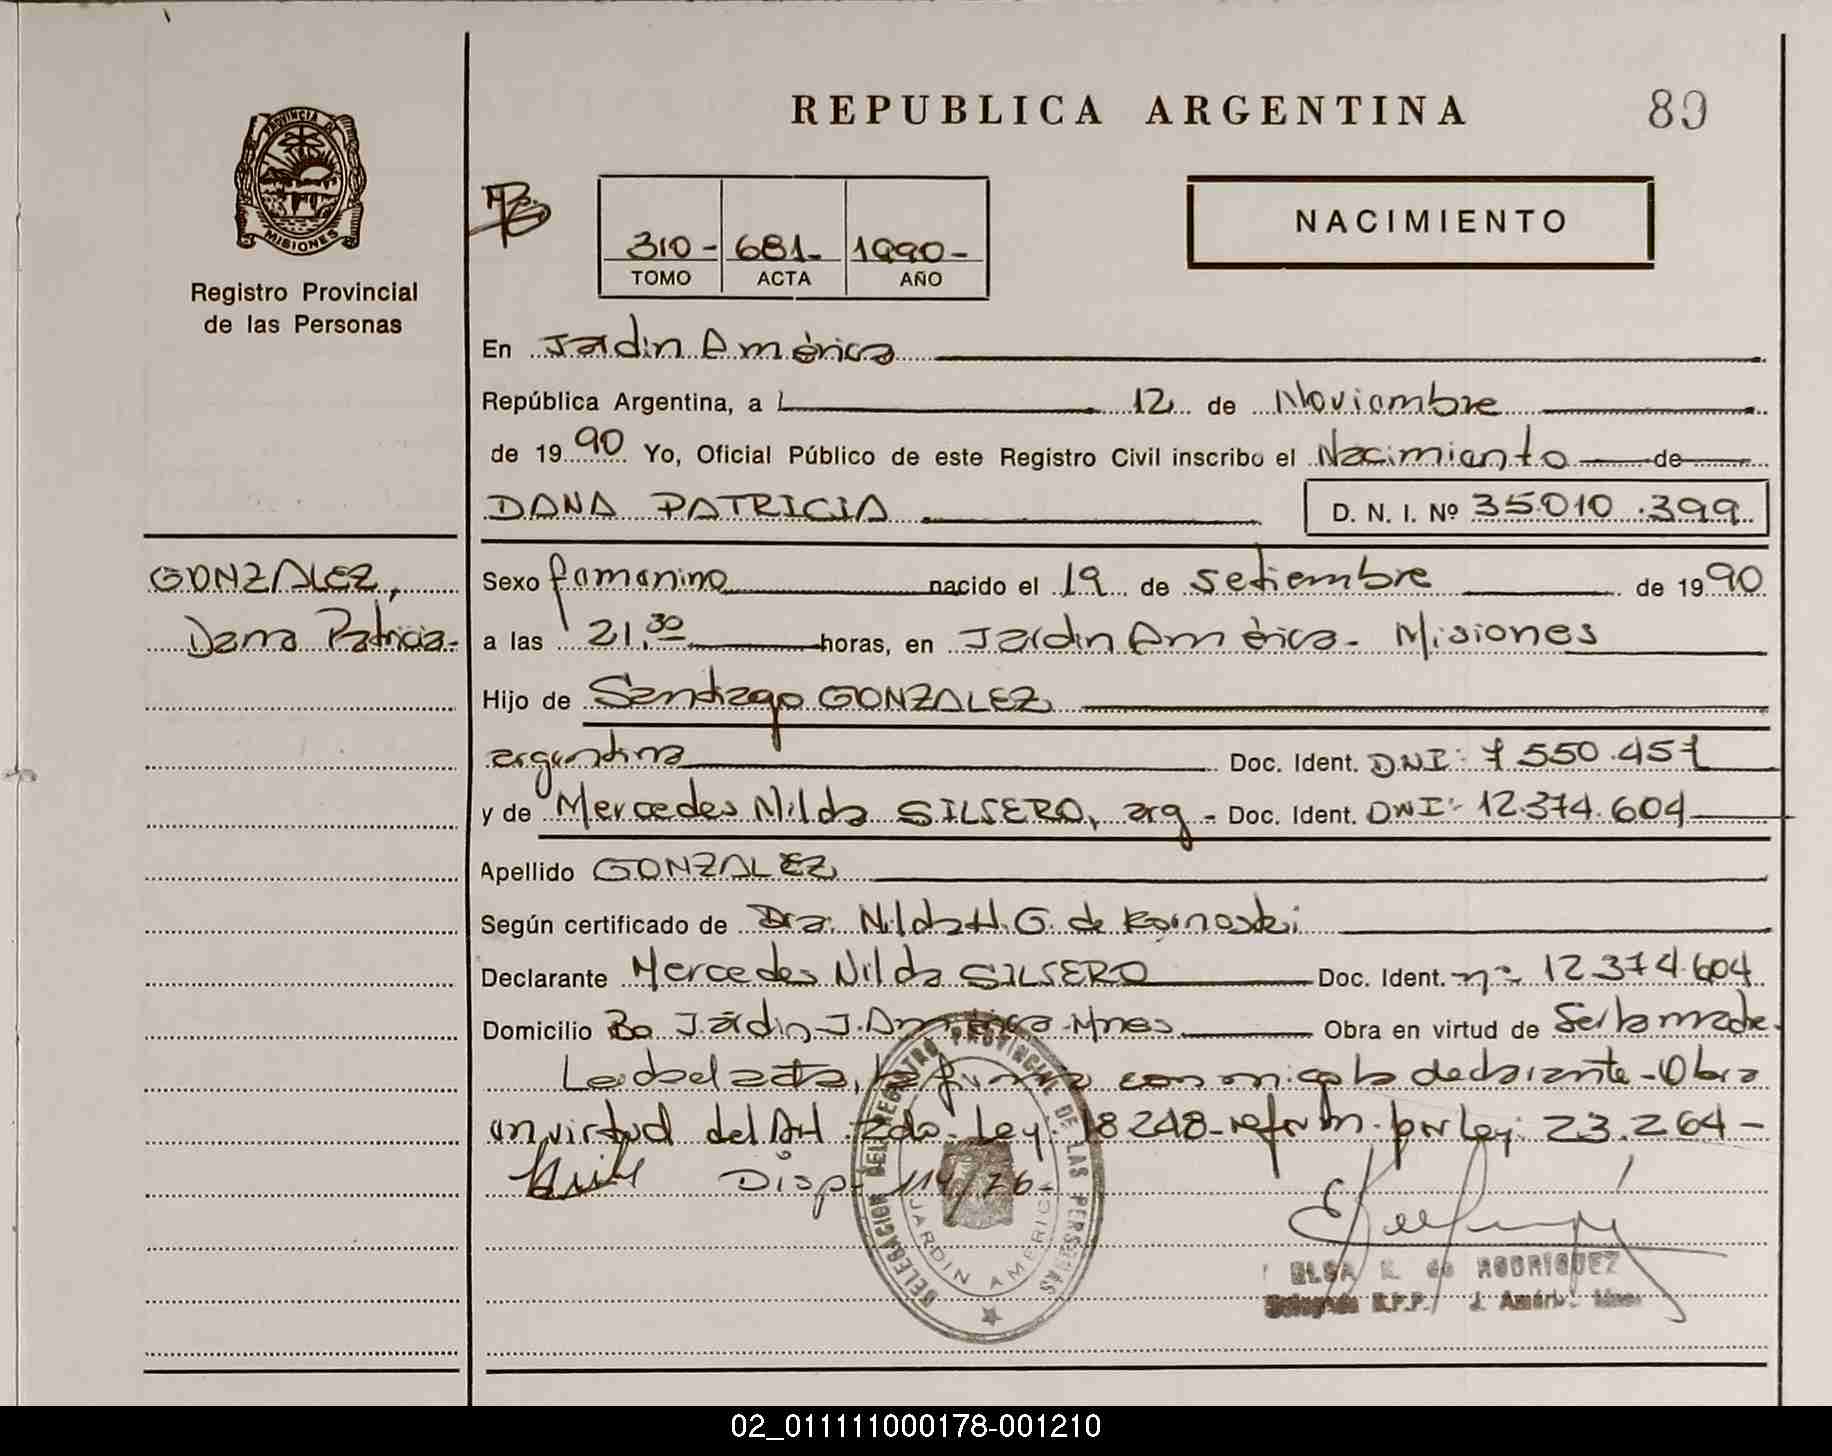 REPUBLICA ARGENTINA
89
PROVINCIA DE
MISIONES
Registro Provincial
de las Personas
310 - 681 - 1990 -
TOMO ACTA AÑO
NACIMIENTO
En Jadin América
República Argentina, a 12 de Noviembre
de 1990 Yo, Oficial Público de este Registro Civil inscribo el Nacimiento de
DANA PATRICIA D. N. I. Nº 35.010.399
GONZALEZ,
Dana Patricia.-
Sexo femenino nacido el 19 de setiembre de 1990
a las 21,30 horas, en Jardin América - Misiones
Hijo de Santiago GONZALEZ
argentina Doc. Ident. DNI: 7.550.457
y de Mercedes Nilda SILSERO, arg - Doc. Ident. DNI: 12.374.604
Apellido GONZALEZ
Según certificado de Dra. Nilda H. G. de
Declarante Mercedes Nilda SILSERO Doc. Ident. nº 12.374.604
Domicilio Bo Jardin, J. América - Mnes Obra en virtud de Ser la madre.
Leida el acta, la firma conmigo la declarante - Obra
en virtud del Art. 2do. Ley: 18.248 - reform. por Ley: 23.264 -
Disp. 114/26 -
DELEGACION DEL REGISTRO PROVINCIAL DE LAS PERSONAS
JARDIN AMERICA
ELSA K. de RODRIGUEZ
Delegada R.P.P. J. Améri. Mnes
02_011111000178-001210